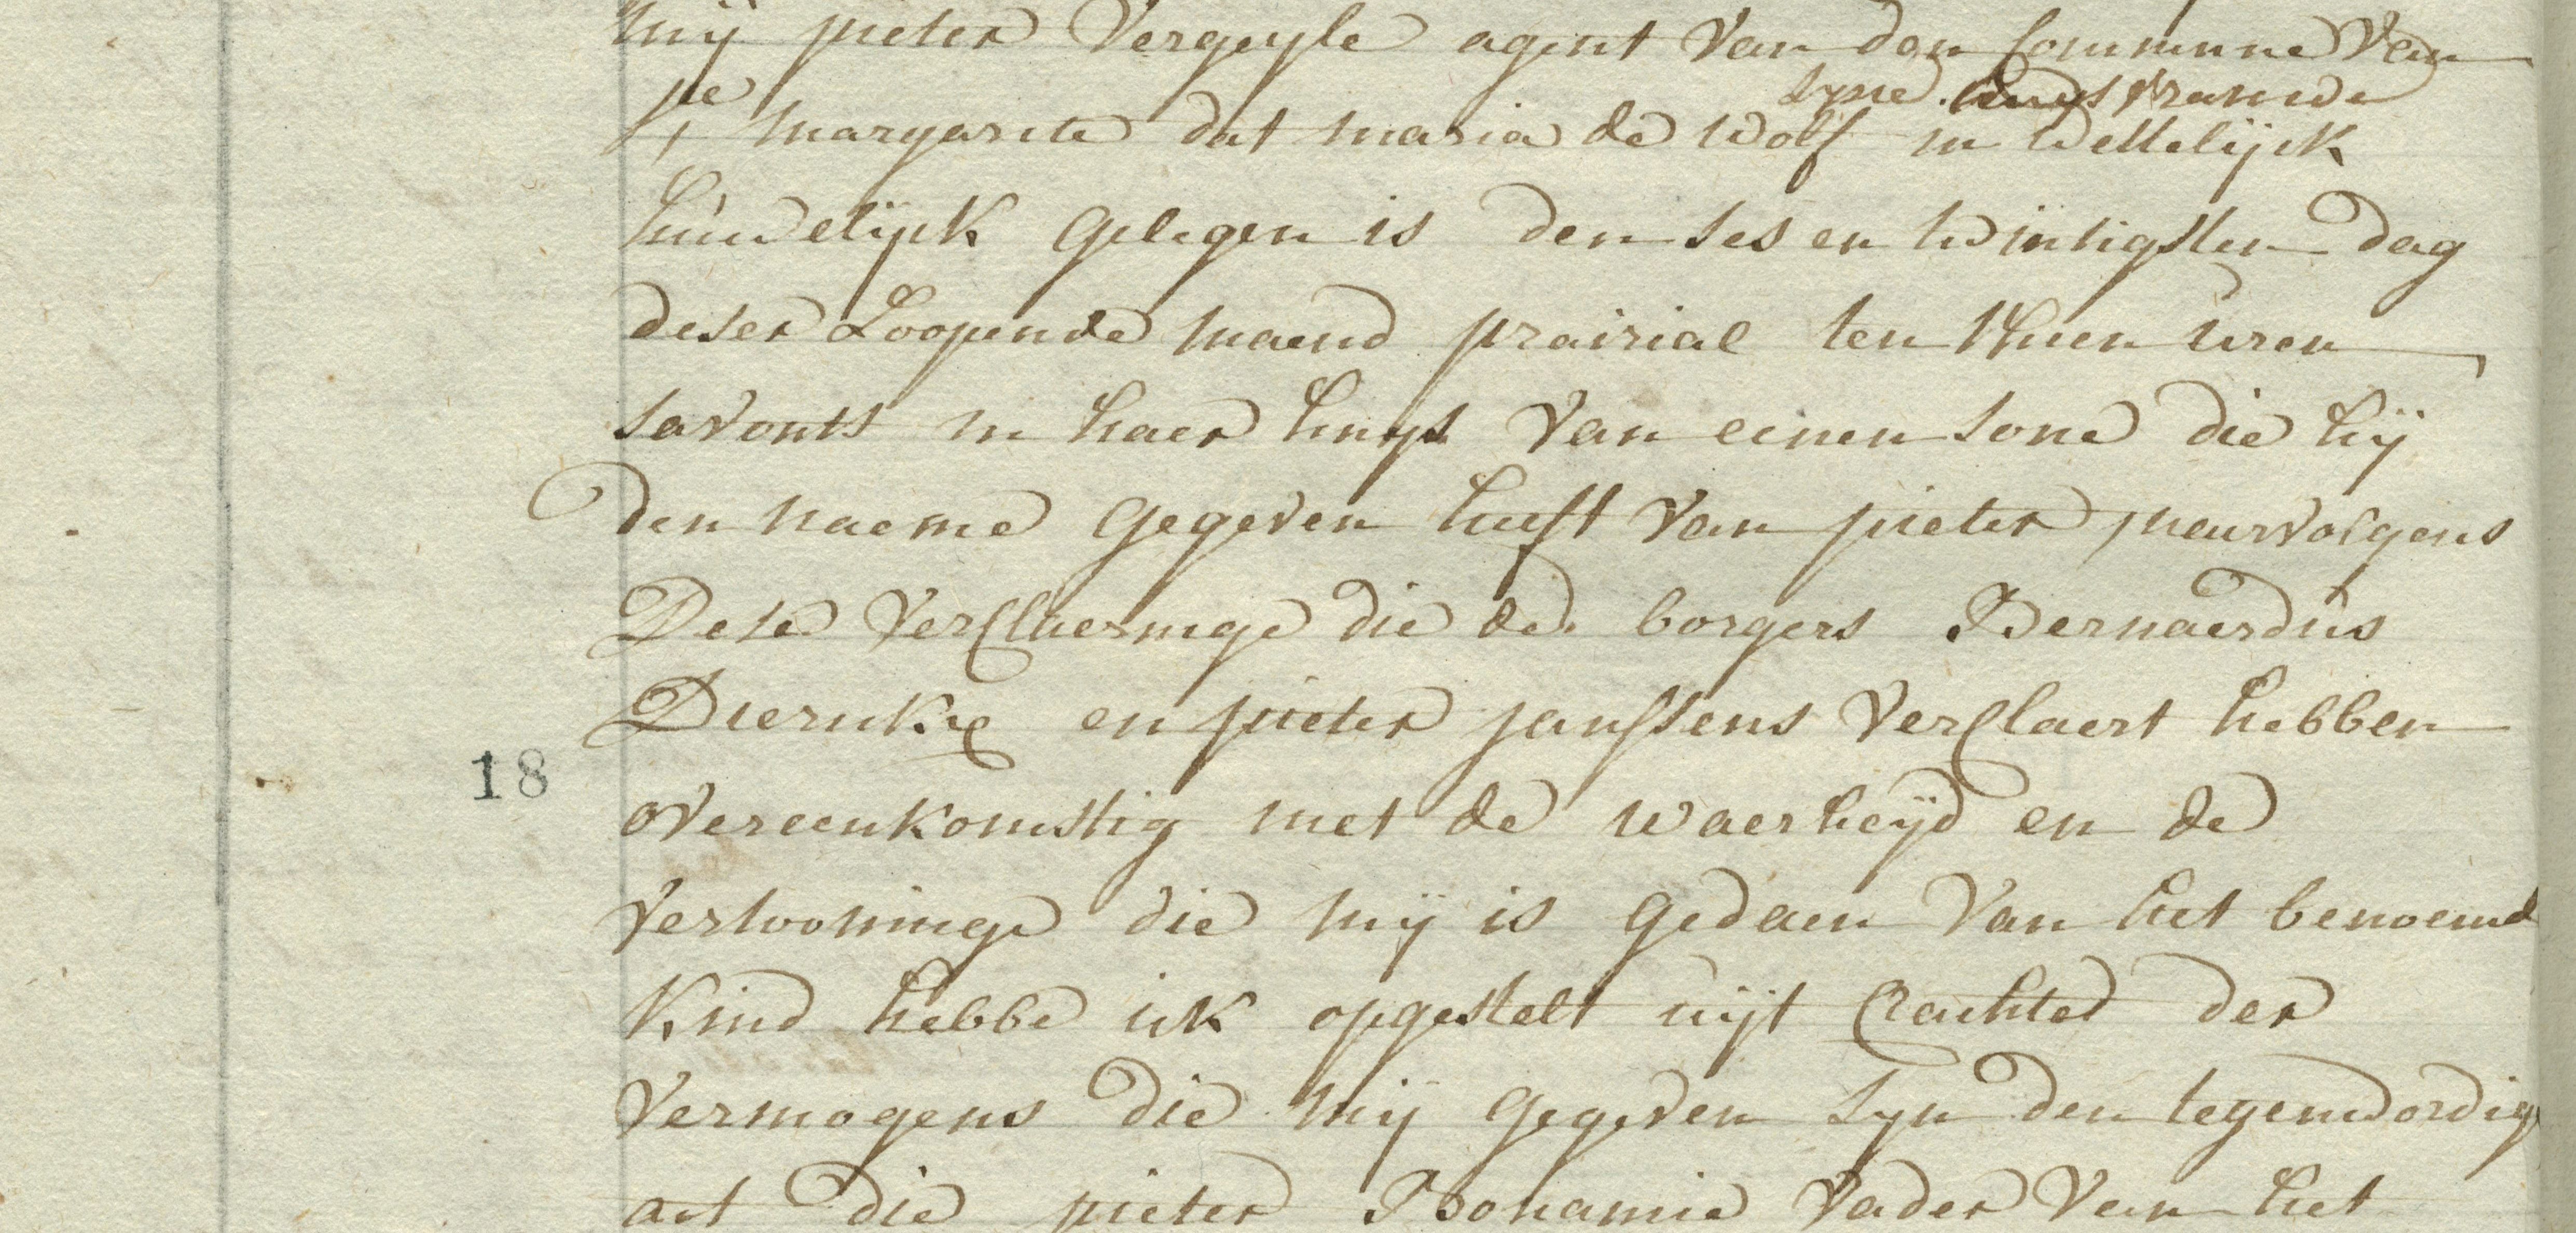 mij pieter Vergeyle agent van den Commune van
syne huysvrauwe
Ste margarite dat maria de Wolf in wettelijck
húwelijck gelegen is den ses en twintigsten dag
deser Loopende maend prairial ten thien úren
savonts in haer huys van eenen sone die hij
den naeme gegeven heeft van pieter, naervolgens
Dese verclaeringe die de borgers Bernaerdús
Dierickx en pieter janssens verclaert hebben
overeenkomstig met de waerheijd en de
vertooninge die mij is gedaen van het benoemd
Kind hebbe ick opgestelt úijt Crachte der
vermogens die mij gegeven syn den tegenwordig
act die pieter Bonamie vader van het
18